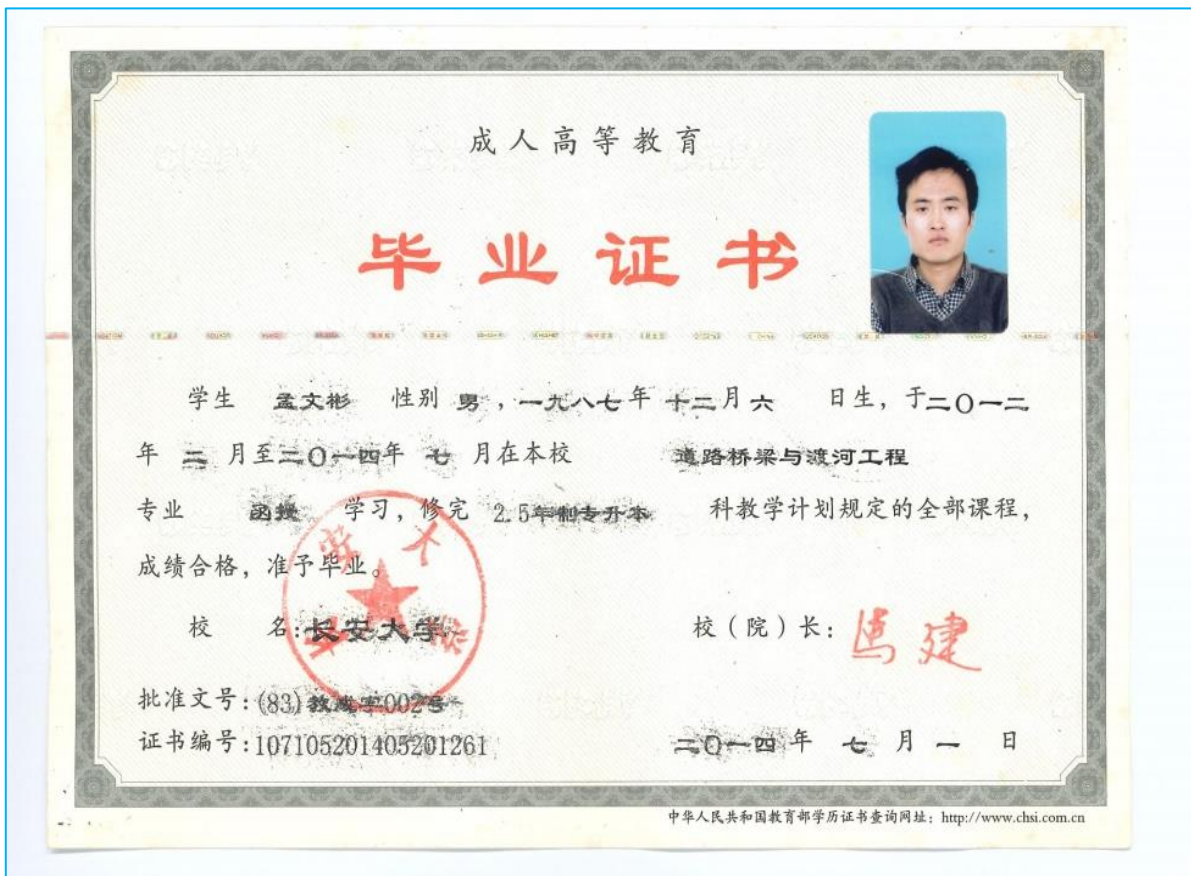 成人高等教育
毕业证书
学生 孟文彬 性别 男，一九八七年 十二月六 日生，于二〇一二
年 二 月至二〇一四年 七 月在本校 道路桥梁与渡河工程
专业 函授 学习，修完 2.5年制专升本 科教学计划规定的全部课程，
成绩合格，准予毕业。
校 名：长安大学
校（院）长：马建
批准文号：(83)教成字002号
证书编号：107105201405201261
二〇一四年 七 月 一 日
中华人民共和国教育部学历证书查询网址：http://www.chsi.com.cn